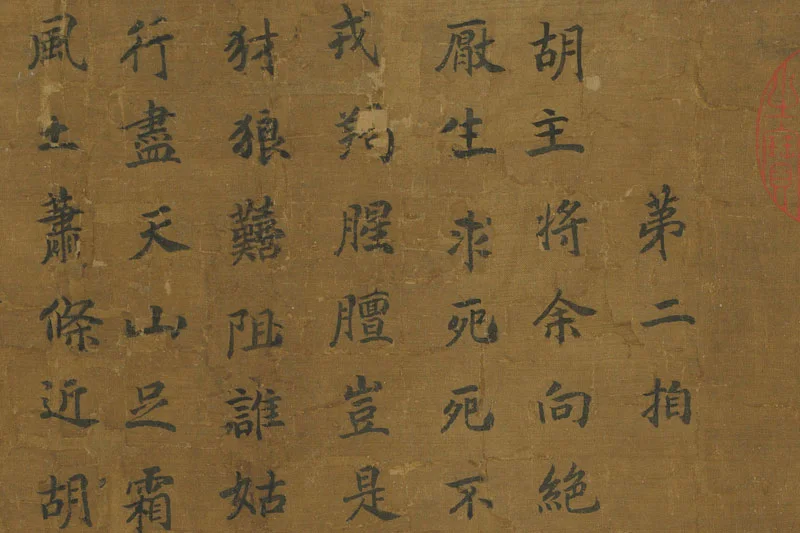 苐二拍
胡主將余向絕
厭生求死死不
戎羯腥膻豈是
犲狼囏阻誰姑
行盡天山足霜
風土蕭條近胡